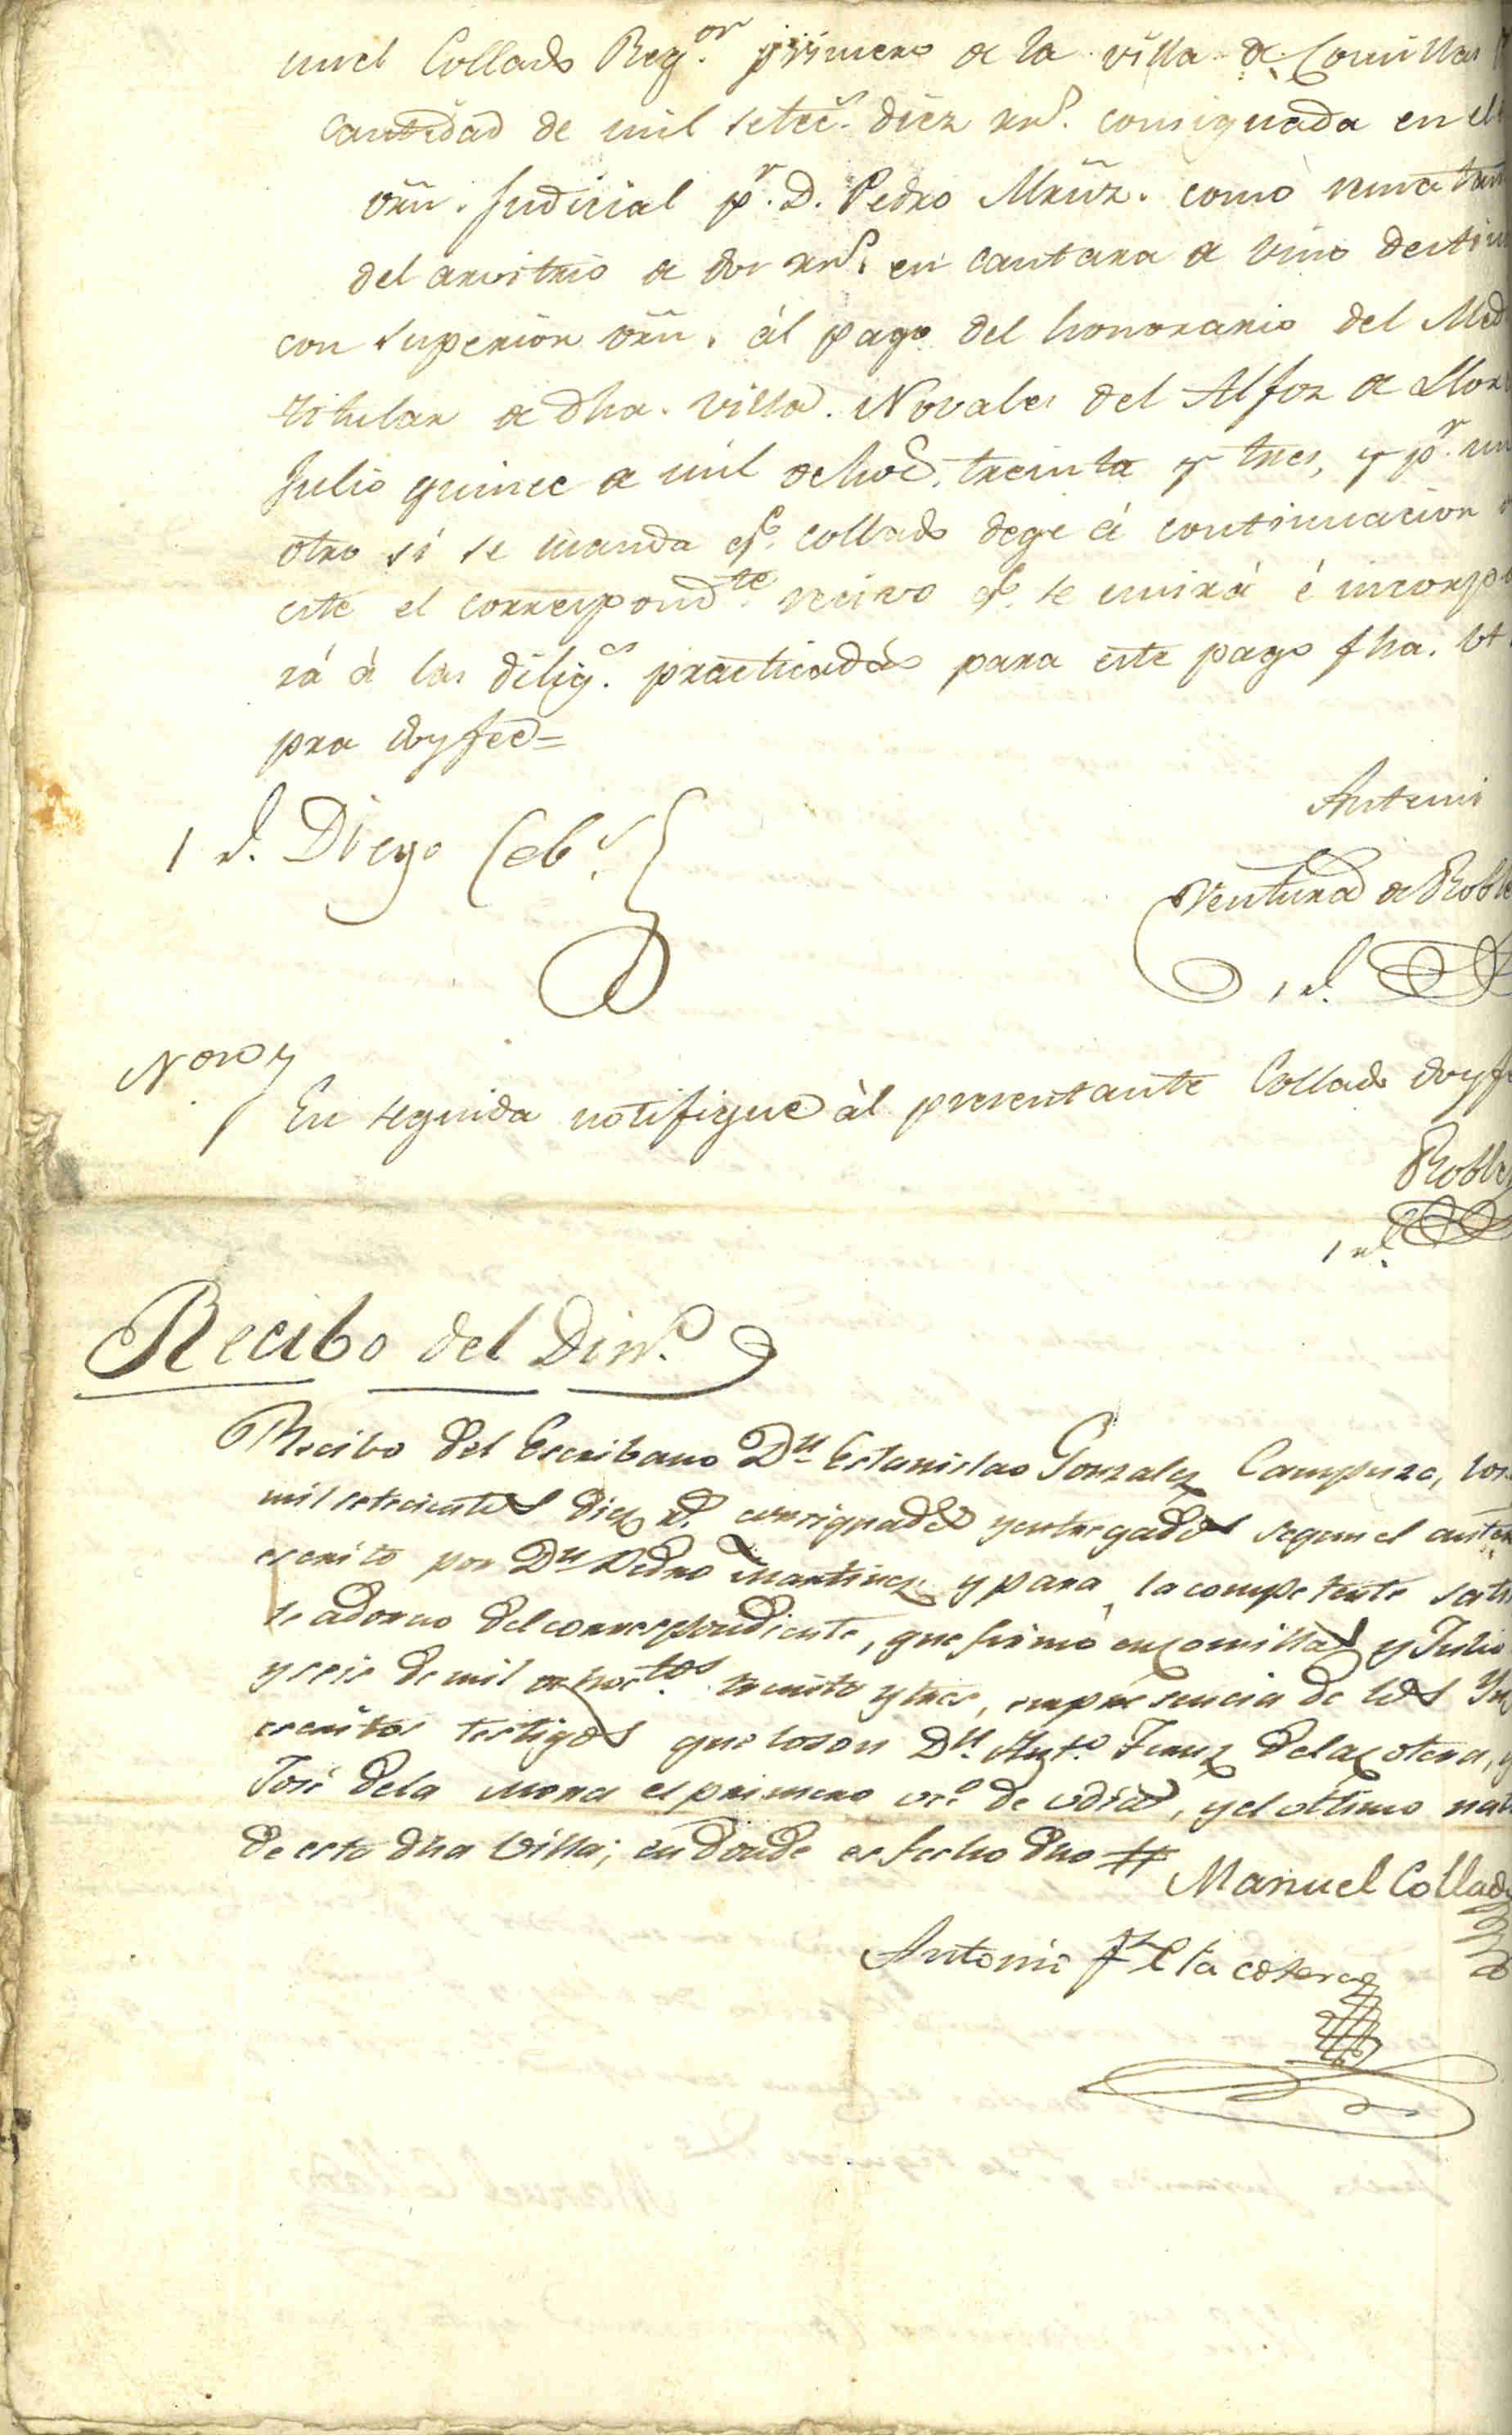 nuel Collado Reg.or primero de la villa de Comillas
cantidad de mil setec.s diez rr.s consignada en el
orñ. Judicial p.r D. Pedro Mrñz. como rematan
del arvitrio de dos rr.s en cantara de vino destin
con superior orñ. ál pago del honorario del Med
titular de dha. villa. Novales del Alfoz de Llor
Julio quince de mil ochoc.s treinta y tres, y p.r un
otro sí se manda q.e Collado dege á continuacion
este el correspond.te recivo q.e se unirá é incorpo
rá á las dilig.s practicadas para este pago fha. ut
pra doy fee=
1 d. Diego Ceb.s
Antemi
Ventura de Roble
1 d.
Noton
En seguida notifiqué ál presentante Collado doy fe
Robles
1 d.
Recibo del Din.o
Recibo del Escribano D.n Estanislao Gonzalez Campuzo, los
mil setecientos diez r.s consignados y entregados segun el ante
escrito por D.n Pedro Martinez y para la competente satis
se adorno del correspondiente, que firmo en Comillas y Julio
y seis de mil ochoc.tos treinta y tres, en presencia de los Yn
escritos testigos que lo son D.n Ant.o Fernz de la Cotera, y
José de la Mora el primero vec.o de Udias, y el ultimo nat
de esta dha Villa; en donde es fecho dho #
Manuel Collado
Antonio Fz de la Cotera